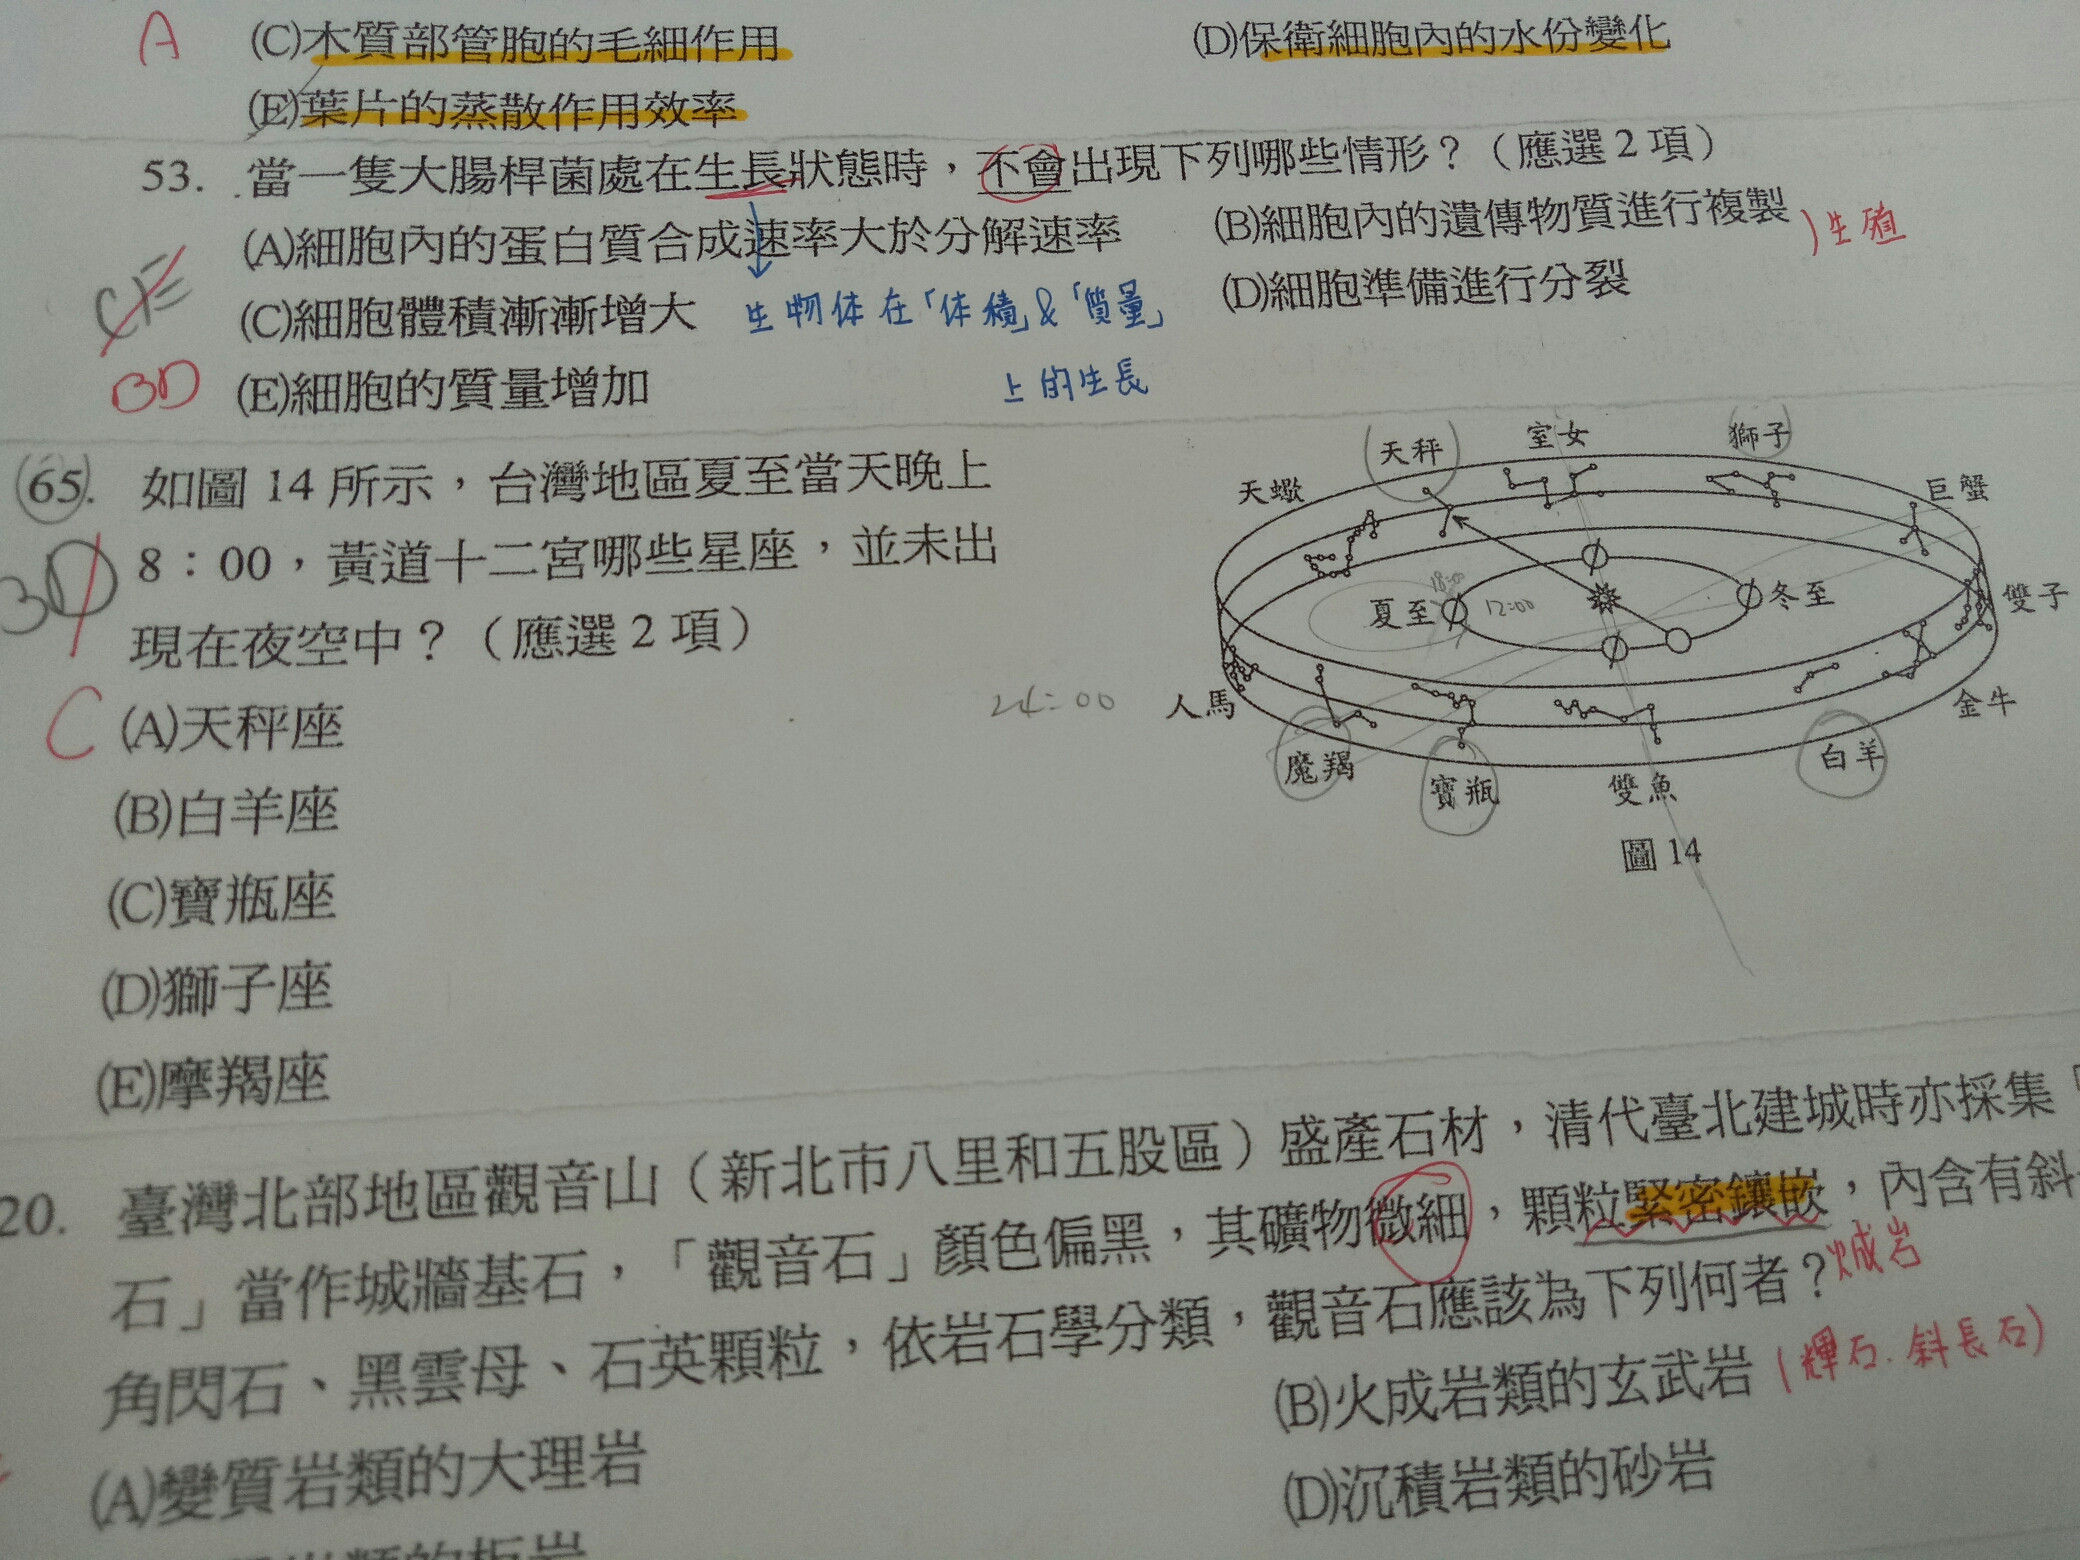 A
(C)木質部管胞的毛細作用
(D)保衛細胞內的水份變化
(E)葉片的蒸散作用效率
53. 當一隻大腸桿菌處在生長狀態時，不會出現下列哪些情形？（應選2項）
(A)細胞內的蛋白質合成速率大於分解速率
(B)細胞內的遺傳物質進行複製
生殖
CE
(C)細胞體積漸漸增大
生物体在「体積」&「質量」
上的生長
(D)細胞準備進行分裂
BD
(E)細胞的質量增加
65. 如圖 14 所示，台灣地區夏至當天晚上
8：00，黃道十二宮哪些星座，並未出
現在夜空中？（應選2項）
C
(A)天秤座
(B)白羊座
(C)寶瓶座
(D)獅子座
(E)摩羯座
天蠍
天秤
室女
獅子
巨蟹
雙子
夏至
18:00
12:00
冬至
24:00
人馬
魔羯
寶瓶
雙魚
白羊
金牛
圖 14
20. 臺灣北部地區觀音山（新北市八里和五股區）盛產石材，清代臺北建城時亦採集「
石」當作城牆基石，「觀音石」顏色偏黑，其礦物微細，顆粒緊密鑲嵌，內含有斜
角閃石、黑雲母、石英顆粒，依岩石學分類，觀音石應該為下列何者？
(A)變質岩類的大理岩
(B)火成岩類的玄武岩
(輝石、斜長石)
(D)沉積岩類的砂岩